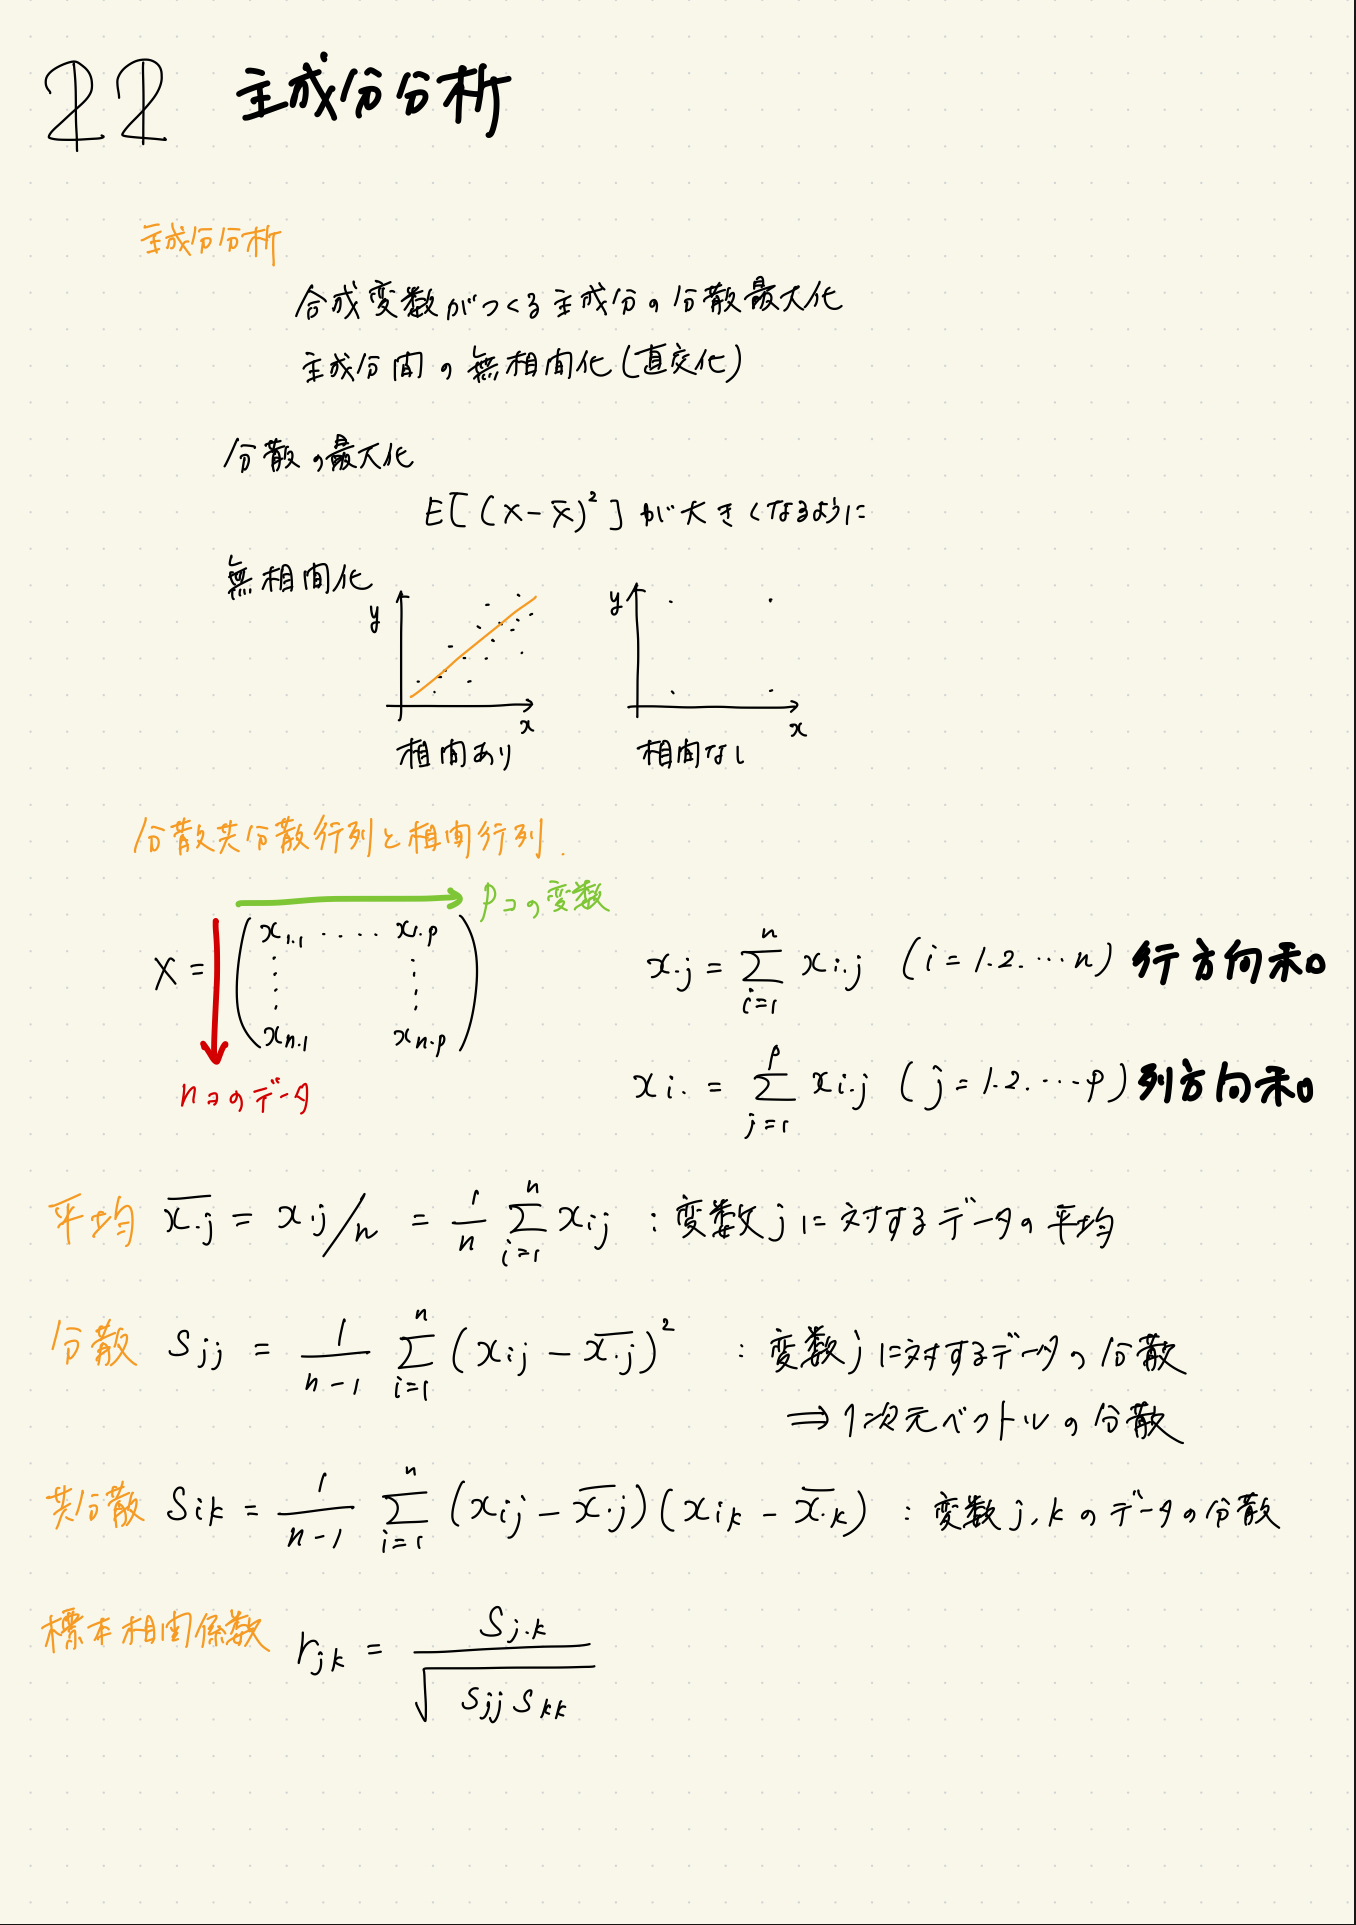 22 主成分分析
主成分分析
合成変数がつくる主成分の分散最大化
主成分間の無相関化(直交化)
分散の最大化
E[(x-x̄)²]が大きくなるように
無相関化
y
x
相関あり
y
x
相関なし
分散共分散行列と相関行列.
pコの変数
X = (x₁.₁ ‥‥ x₁.p
⋮ ⋮
xn.1 xn.p)
nコのデータ
x.j = Σ[i=1, n] xi.j (i=1.2.…n) 行方向和。
xi. = Σ[j=1, p] xi.j (j=1.2.…p) 列方向和。
平均 \overline{x.j} = x.j/n = 1/n Σ[i=1, n] xij : 変数jに対するデータの平均
分散 Sjj = 1/(n-1) Σ[i=1, n] (xij - \overline{x.j})² : 変数jに対するデータの分散
⇒1次元ベクトルの分散
共分散 Sik = 1/(n-1) Σ[i=1, n] (xij - \overline{x.j})(xik - \overline{x.k}) : 変数j,kのデータの分散
標本相関係数 rjk = Sj.k / √(Sjj Skk)